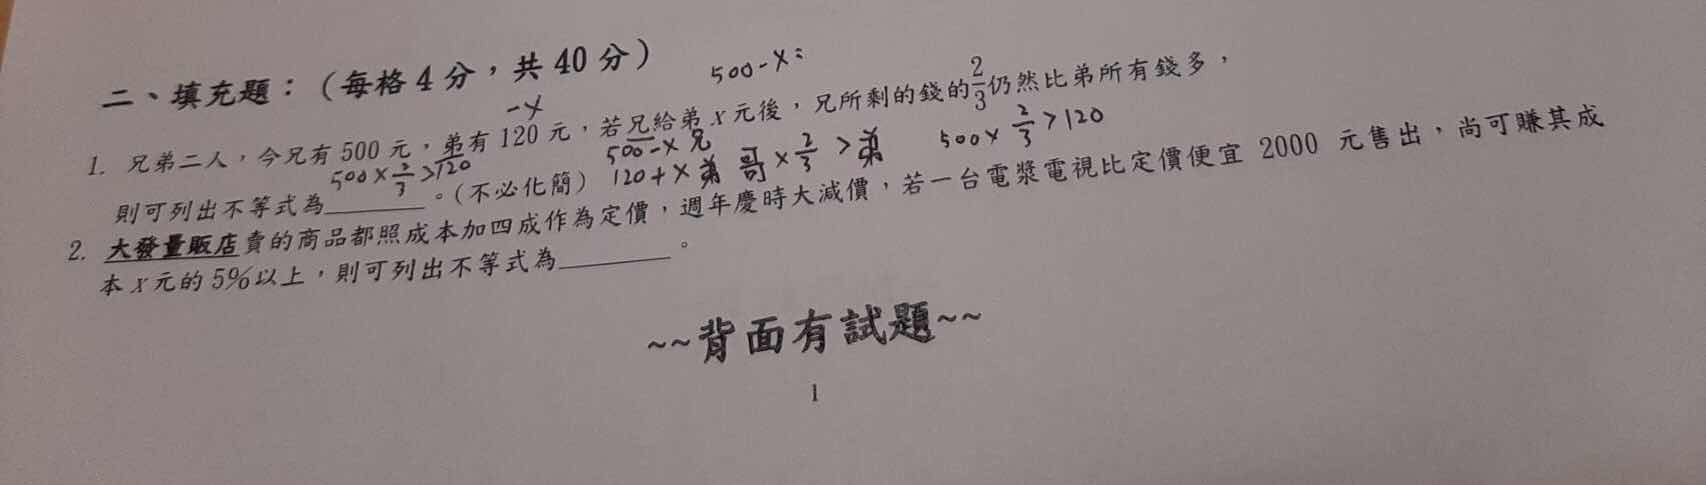 二、填充題：（每格 4 分，共 40 分）
500-x：
-x
1. 兄弟二人，今兄有 500 元，弟有 120 元，若兄給弟 x 元後，兄所剩的錢的 2/3 仍然比弟所有錢多，
500-x 兄
500×2/3>120
120+x 弟 哥×2/3>弟
500×2/3>120
則可列出不等式為______。(不必化簡)
2. 大發量販店賣的商品都照成本加四成作為定價，週年慶時大減價，若一台電漿電視比定價便宜 2000 元售出，尚可賺其成
本 x 元的 5%以上，則可列出不等式為______。
~~背面有試題~~
1